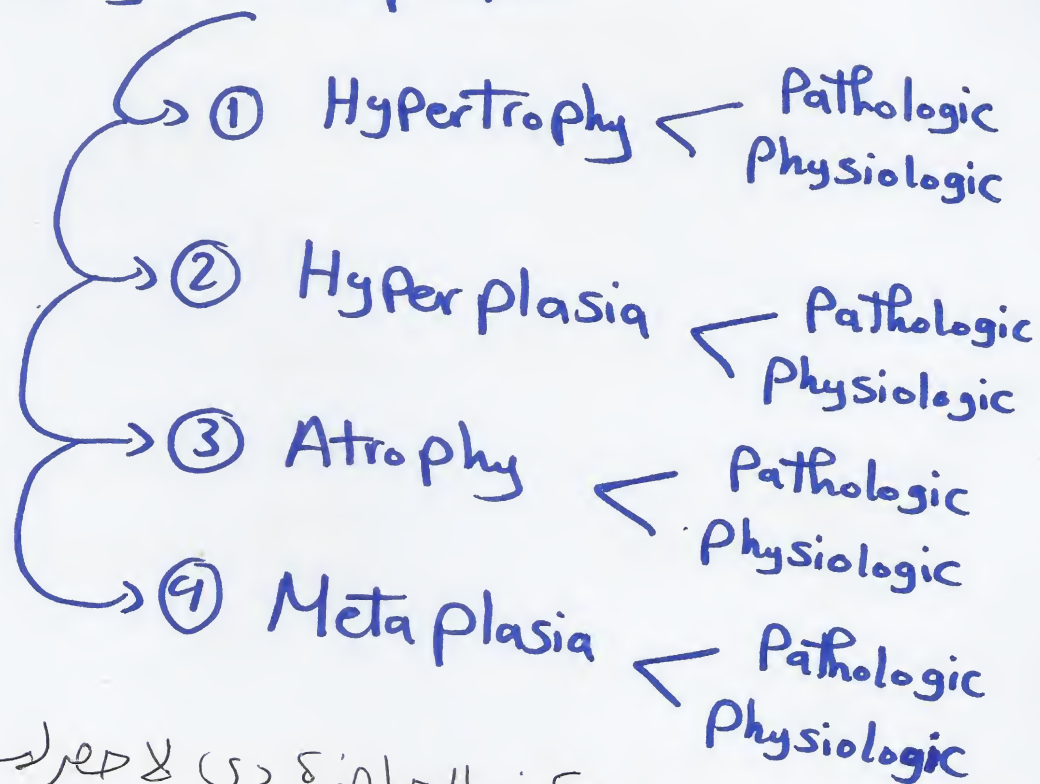 ① Hypertrophy < Pathologic
Physiologic
② Hyperplasia < Pathologic
Physiologic
③ Atrophy < Pathologic
Physiologic
④ Metaplasia < Pathologic
Physiologic
دي لا